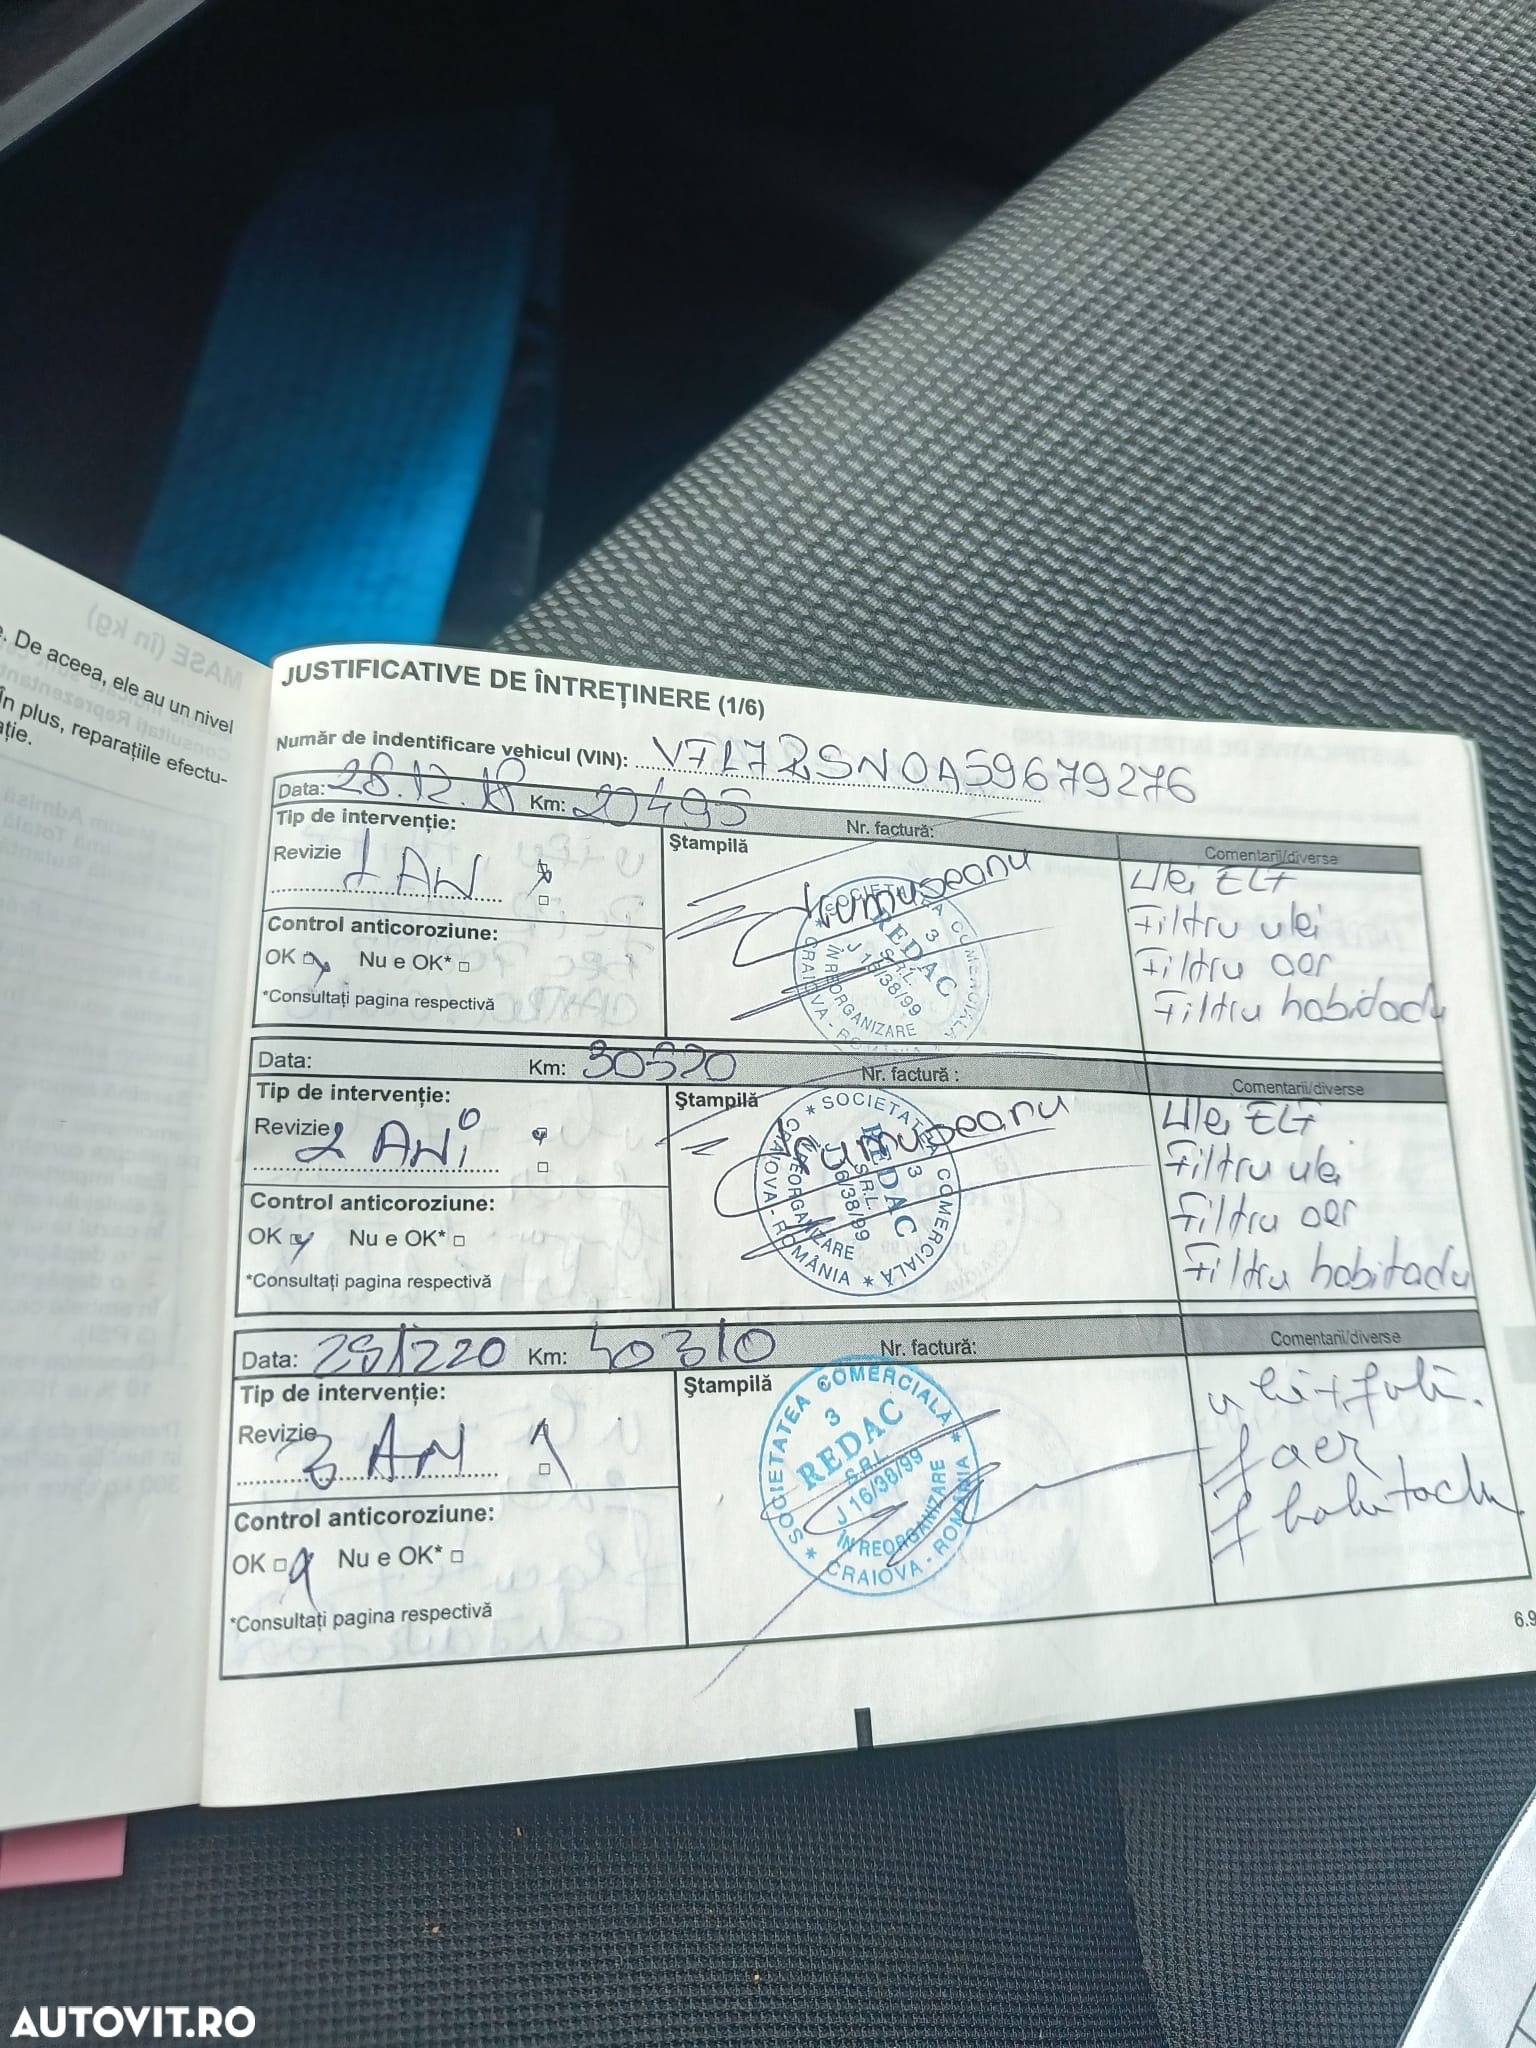 e. De aceea, ele au un nivel
În plus, reparațiile efectu-
ație.
JUSTIFICATIVE DE ÎNTREȚINERE (1/6)
Număr de indentificare vehicul (VIN):
Data: 28.12.18 Km: 20495 Nr. factură: Comentarii/diverse
Tip de intervenție:
Revizie 1 AN
Ștampilă
Control anticoroziune:
OK Nu e OK*
*Consultați pagina respectivă
* SOCIETATEA COMERCIALĂ * CRAIOVA - ROMÂNIA
3
REDAC
S.R.L.
J 16/38/99
ÎN REORGANIZARE
Ulei ELF
Filtru ulei
Filtru aer
Filtru habitaclu
Data: Km: 30520 Nr. factură : Comentarii/diverse
Tip de intervenție:
Revizie 2 ANi
Ștampilă
Control anticoroziune:
OK Nu e OK*
*Consultați pagina respectivă
* SOCIETATEA COMERCIALĂ * CRAIOVA - ROMÂNIA
3
REDAC
S.R.L.
J 16/38/99
ÎN REORGANIZARE
Ulei ELF
Filtru ulei
Filtru aer
Filtru habitaclu
Data: Km: 40310 Nr. factură: Comentarii/diverse
Tip de intervenție:
Revizie 3 AN
Ștampilă
Control anticoroziune:
OK Nu e OK*
*Consultați pagina respectivă
* SOCIETATEA COMERCIALĂ * CRAIOVA - ROMÂNIA
3
REDAC
S.R.L.
J 16/38/99
ÎN REORGANIZARE
f aer
f habitaclu
6.9
AUTOVIT.RO